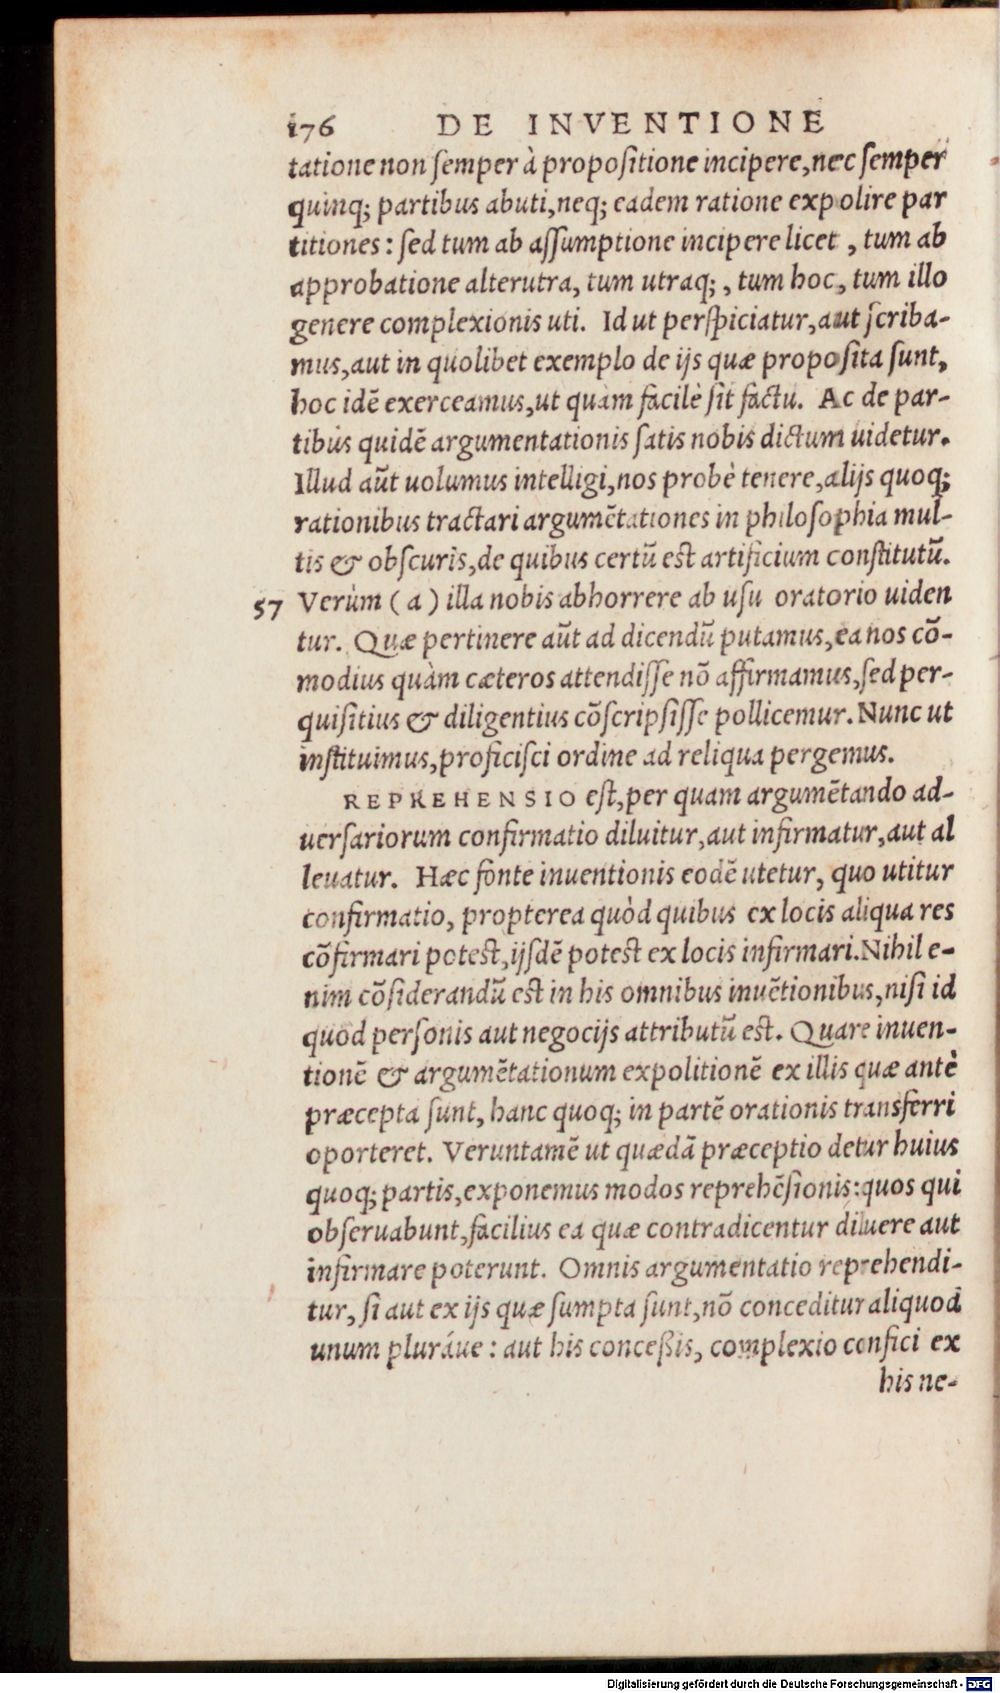 176 DE INVENTIONE
tatione non semper à propositione incipere, nec semper
quinq; partibus abuti, neq; eadem ratione expolire par
titiones: sed tum ab assumptione incipere licet, tum ab
approbatione alterutra, tum utraq;, tum hoc, tum illo
genere complexionis uti. Id ut perspiciatur, aut scriba-
mus, aut in quolibet exemplo de ijs quæ proposita sunt,
hoc idē exerceamus, ut quàm facilè sit factu. Ac de par-
tibus quidē argumentationis satis nobis dictum uidetur.
Illud aūt uolumus intelligi, nos probè tenere, alijs quoq;
rationibus tractari argumētationes in philosophia mul-
tis & obscuris, de quibus certū est artificium constitutū.
57 Verùm (a) illa nobis abhorrere ab usu oratorio uiden
tur. Quæ pertinere aūt ad dicendū putamus, ea nos cō-
modius quàm cæteros attendisse nō affirmamus, sed per-
quisitius & diligentius cōscripsisse pollicemur. Nunc ut
instituimus, proficisci ordine ad reliqua pergemus.
REPREHENSIO est, per quam argumētando ad-
uersariorum confirmatio diluitur, aut infirmatur, aut al
leuatur. Hæc fonte inuentionis eodē utetur, quo utitur
confirmatio, propterea quòd quibus ex locis aliqua res
cōfirmari potest, ijsdē potest ex locis infirmari. Nihil e-
nim cōsiderandū est in his omnibus inuētionibus, nisi id
quod personis aut negocijs attributū est. Quare inuen-
tionē & argumētationum expolitionē ex illis quæ antè
præcepta sunt, hanc quoq; in partē orationis transferri
oporteret. Veruntamē ut quædā præceptio detur huius
quoq; partis, exponemus modos reprehēsionis: quos qui
obseruabunt, facilius ea quæ contradicentur diluere aut
infirmare poterunt. Omnis argumentatio reprehendi-
tur, si aut ex ijs quæ sumpta sunt, nō conceditur aliquod
unum pluráue: aut his conceßis, complexio confici ex
his ne-
Digitalisierung gefördert durch die Deutsche Forschungsgemeinschaft - DFG